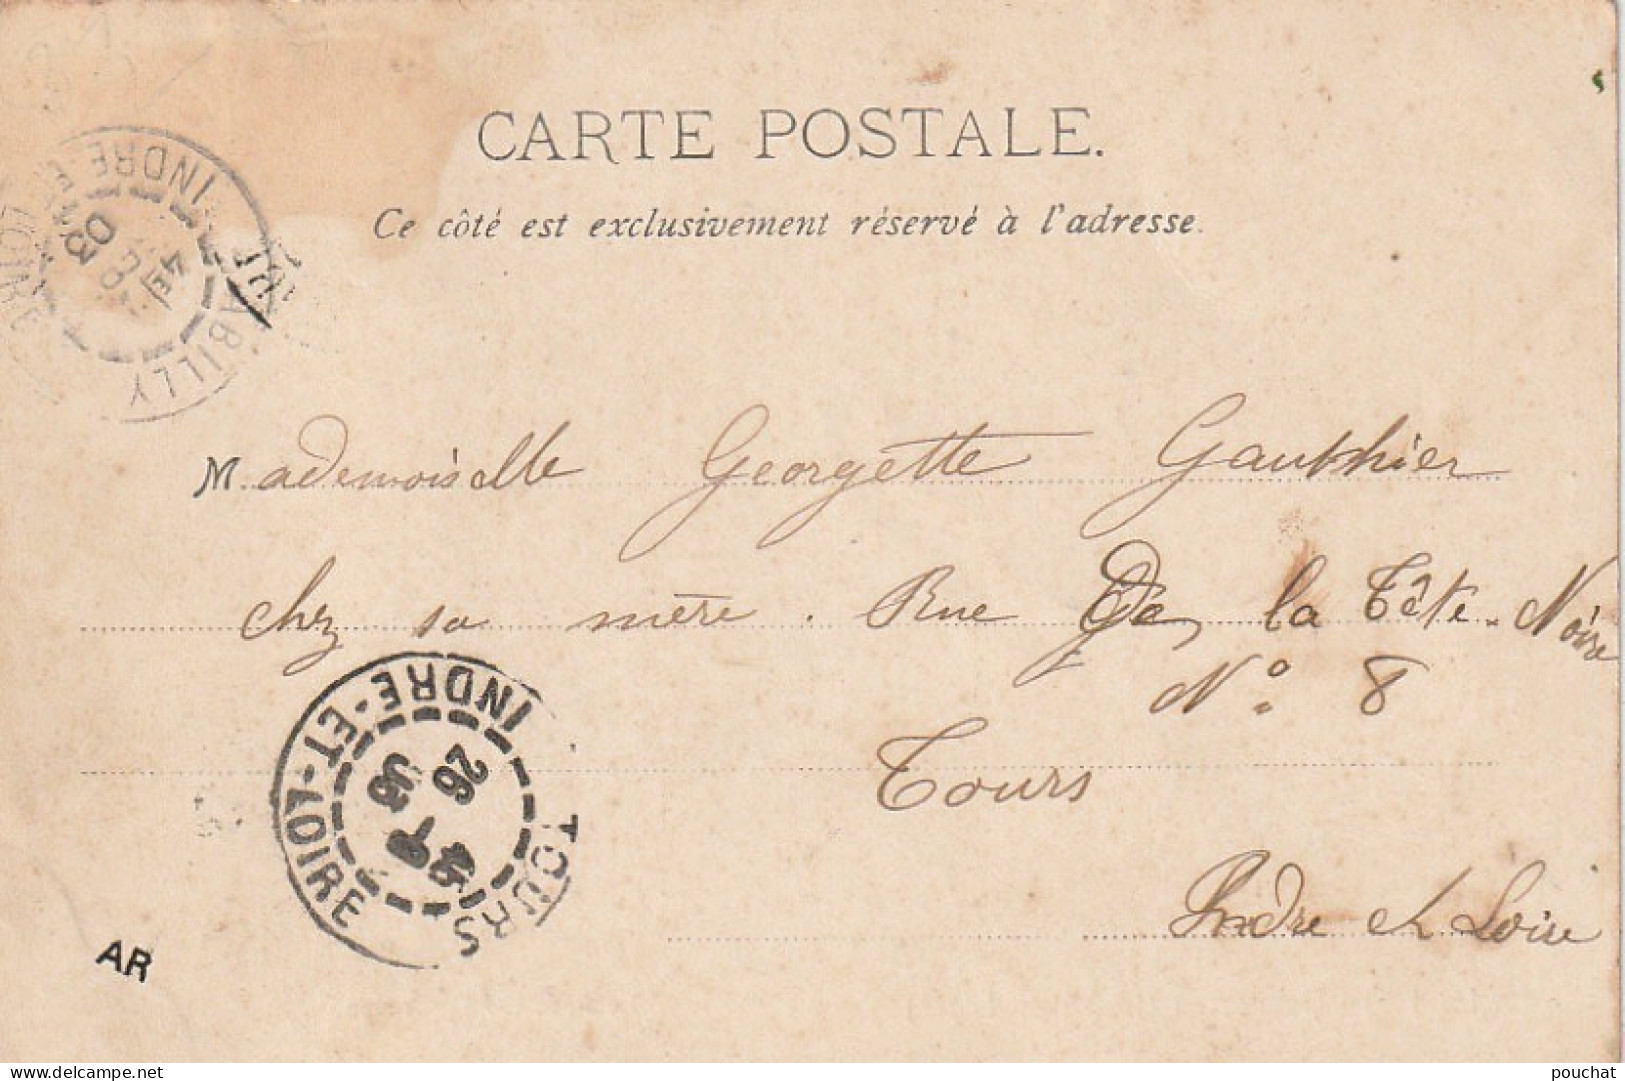 CARTE POSTALE.
Ce côté est exclusivement réservé à l'adresse.
ABILLY
INDRE-ET-LOIRE
4E
03
Mademoiselle Georgette Gauthier
chez sa mère. Rue De la Tête-Noire
N° 8
Tours
Indre et Loire
TOURS
INDRE-ET-LOIRE
26
03
AR
https://www.delcampe.net
pouchat